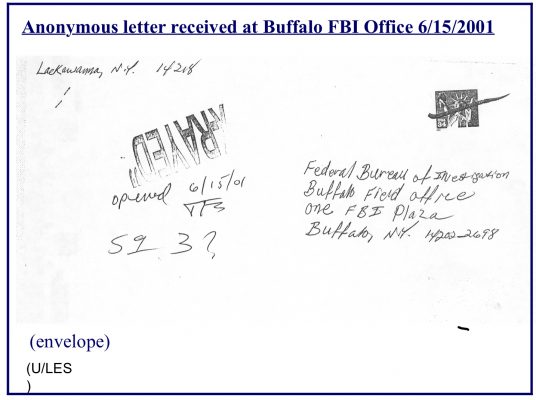 Anonymous letter received at Buffalo FBI Office 6/15/2001
Lackawanna, N.Y. 14218
"X-RAYED"
opened 6/15/01
Federal Bureau of Investigation
Buffalo Field office
one FBI Plaza
Buffalo, N.Y. 14202-2698
SQ 3?
(envelope)
(U/LES
)